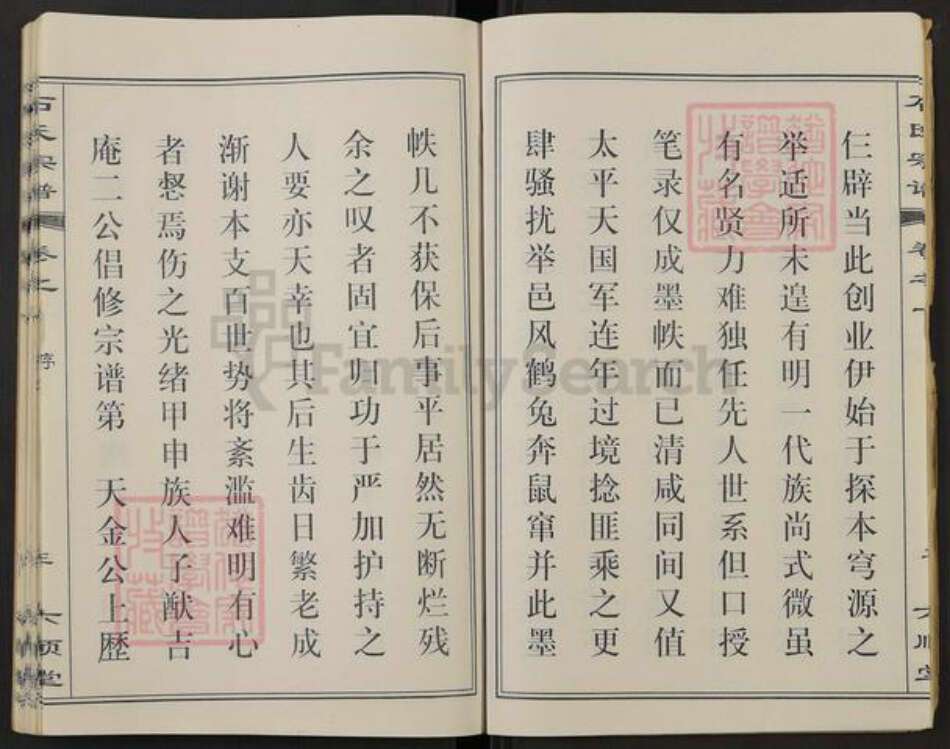 仨辟当此创业伊始于探本穹源之
举适所未遑有明一代族尚式微虽
有名贤力难独任先人世系但口授
笔录仅成墨帙而已清咸同间又值
太平天国军连年过境捻匪乘之更
肆骚扰举邑风鹤兔奔鼠窜并此墨
帙几不获保后事平居然无断烂残
余之叹者固宜归功于严加护持之
人要亦天幸也其后生齿日繁老成
渐谢本支百世势将紊滥难明有心
者惄焉伤之光绪甲申族人子猷吉
庵二公倡修宗谱第 天金公上歷
石氏宗谱 卷之一
序
三
六顺堂
FamilySearch